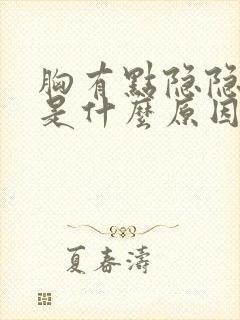 胸有點隐隐
是什麼原因
夏春濤